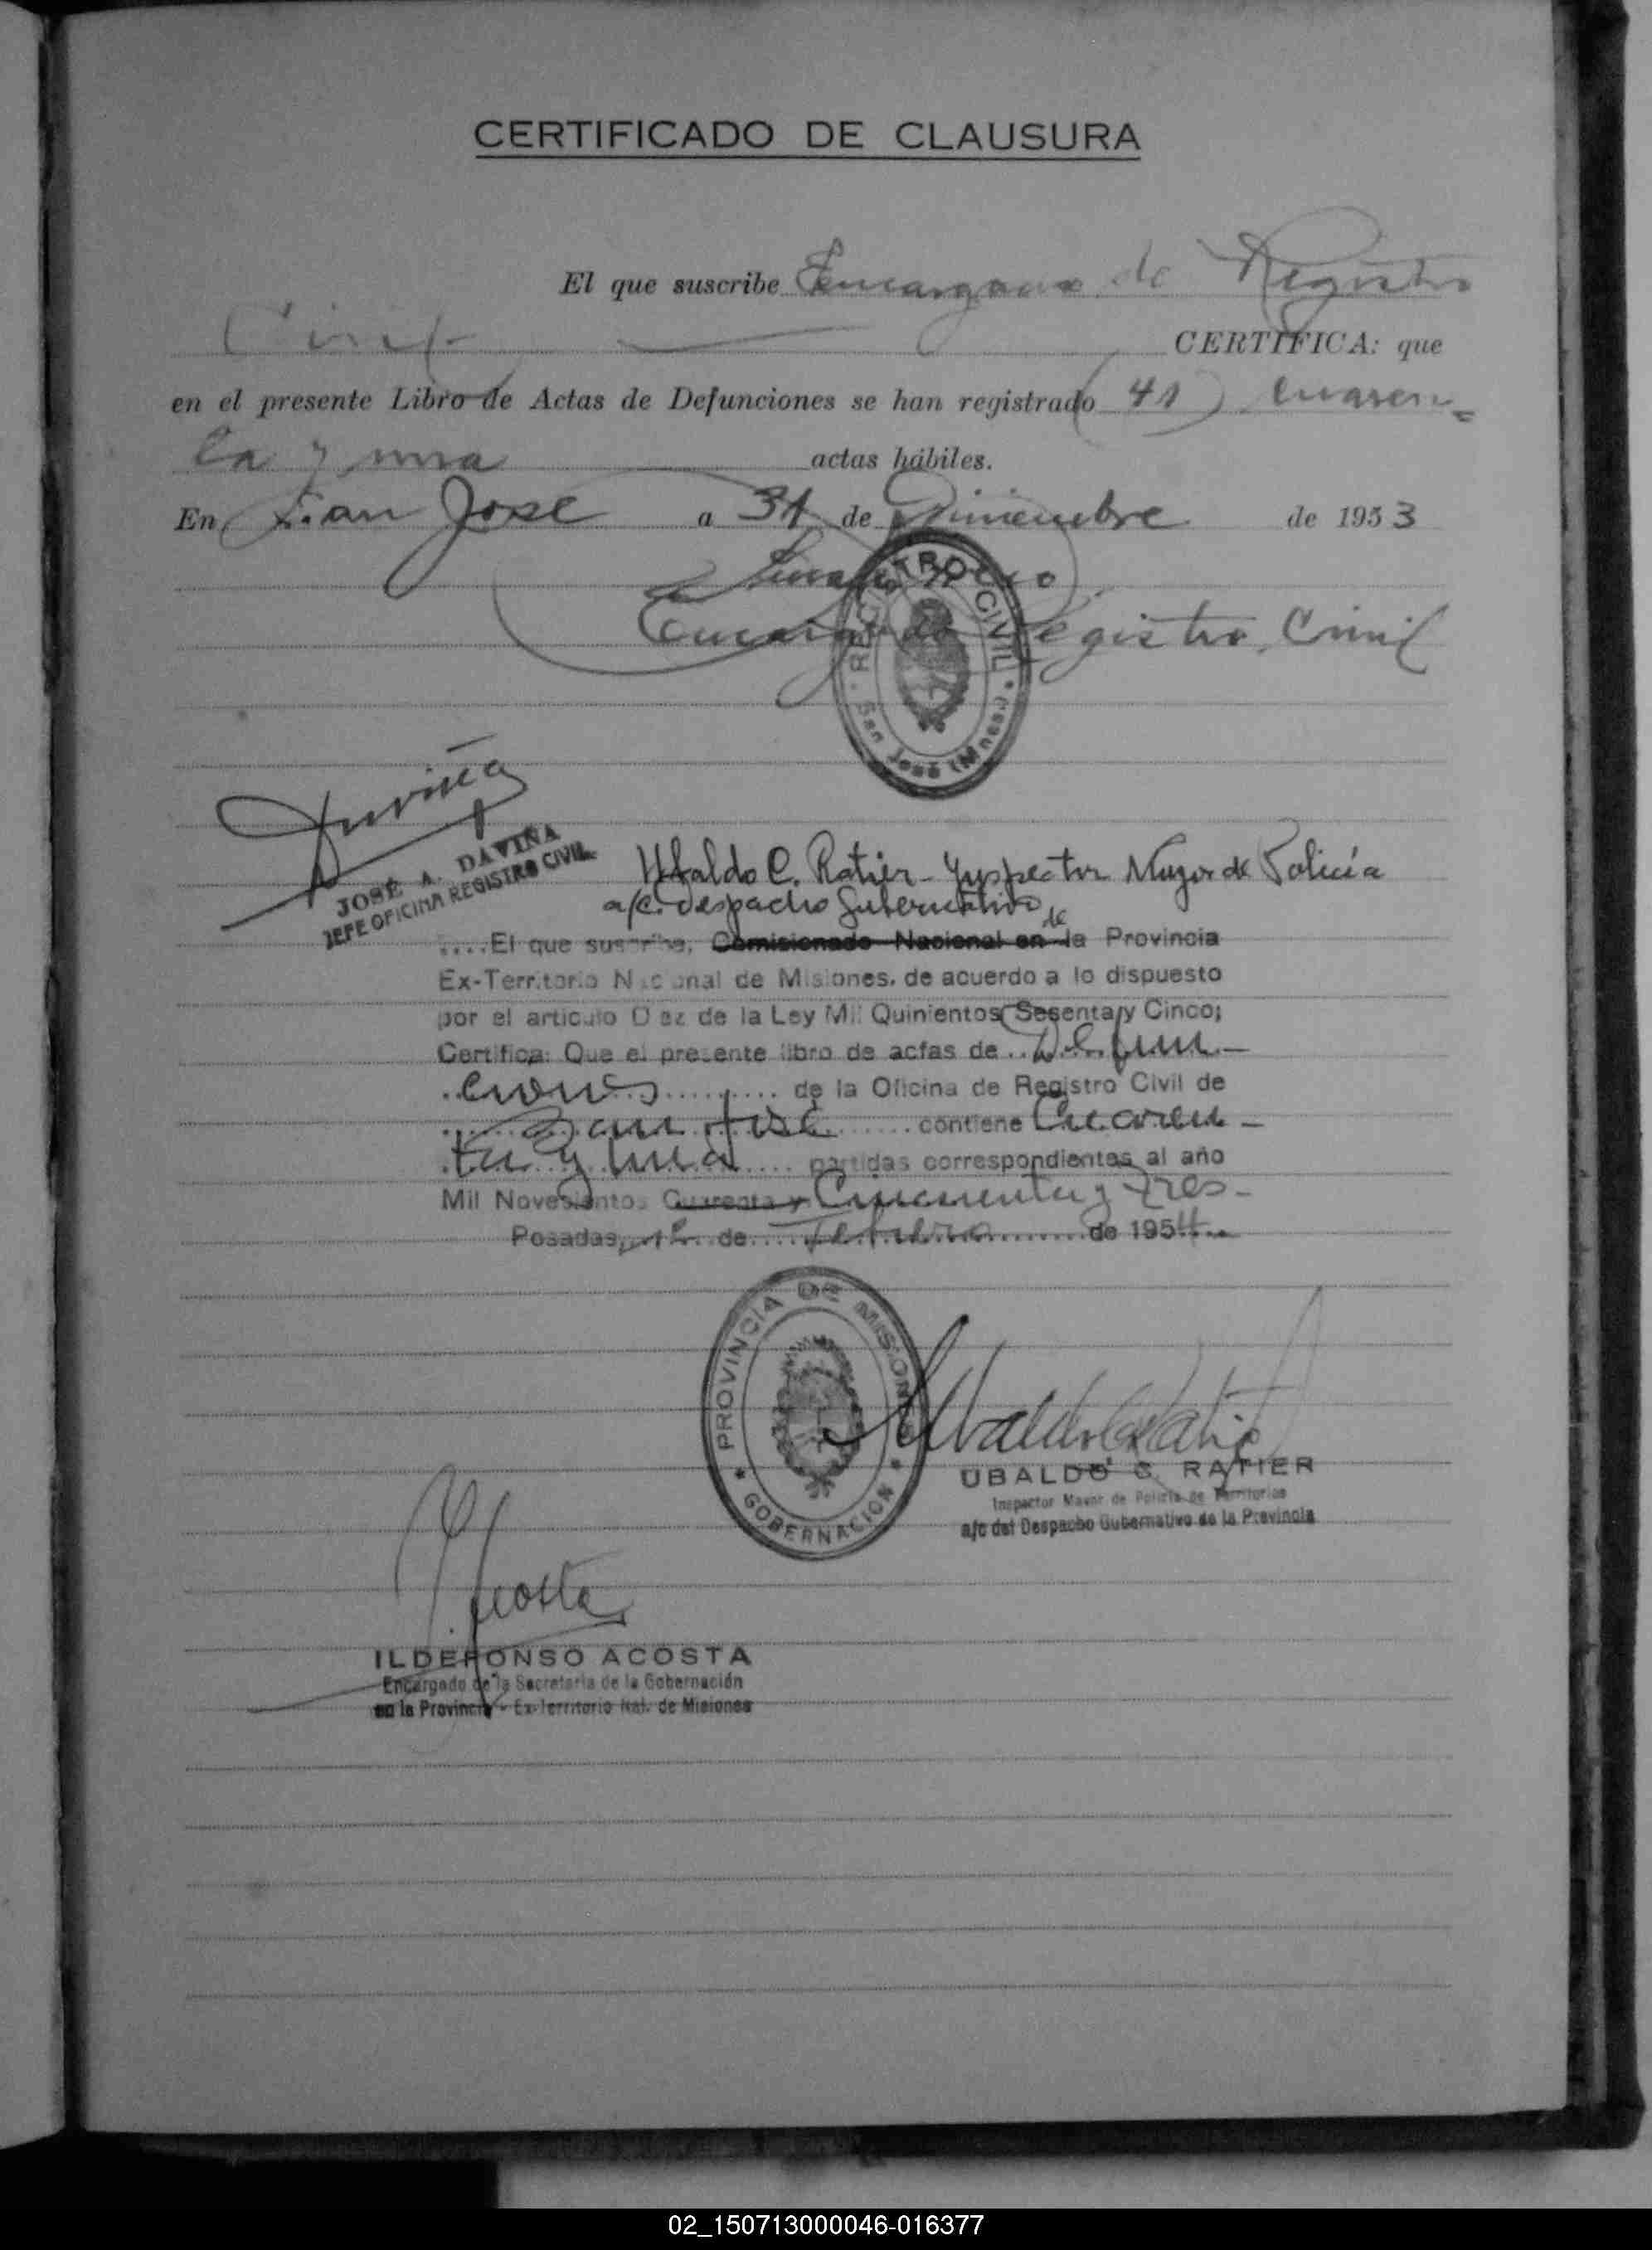 CERTIFICADO DE CLAUSURA
El que suscribe Encargado de Registro
Civil CERTIFICA: que
en el presente Libro de Actas de Defunciones se han registrado (41) Cuaren-
ta y una actas hábiles.
En San José a 31 de Diciembre de 1953
Encargado Registro Civil
REGISTRO CIVIL
San José (Mnes.)
Daviña
JOSÉ A. DAVIÑA
JEFE OFICINA REGISTRO CIVIL
Ubaldo C. Ratier - Inspector Mayor de Policía
a/c. despacho Gubernativo de
....El que suscribe, Comisionado Nacional en la Provincia
Ex-Territorio Nacional de Misiones, de acuerdo a lo dispuesto
por el articulo Diez de la Ley Mil Quinientos Sesenta y Cinco;
Certifica: Que el presente libro de actas de .. Defun-
ciones ........ de la Oficina de Registro Civil de
San José ...... contiene Cuaren-
ta y una .... partidas correspondientes al año
Mil Novesientos Cuarenta y Cincuenta y tres-
Posadas, 1º de Febrero de 1954
PROVINCIA DE MISIONES
* GOBERNACION *
Ubaldo C. Ratier
UBALDO C. RATIER
Inspector Mayor de Policía de Territorios
a/c del Despacho Gubernativo de la Provincia
Acosta
ILDEFONSO ACOSTA
Encargado de la Secretaria de la Gobernación
en la Provincia - Ex-Territorio Nal. de Misiones
02_150713000046-016377